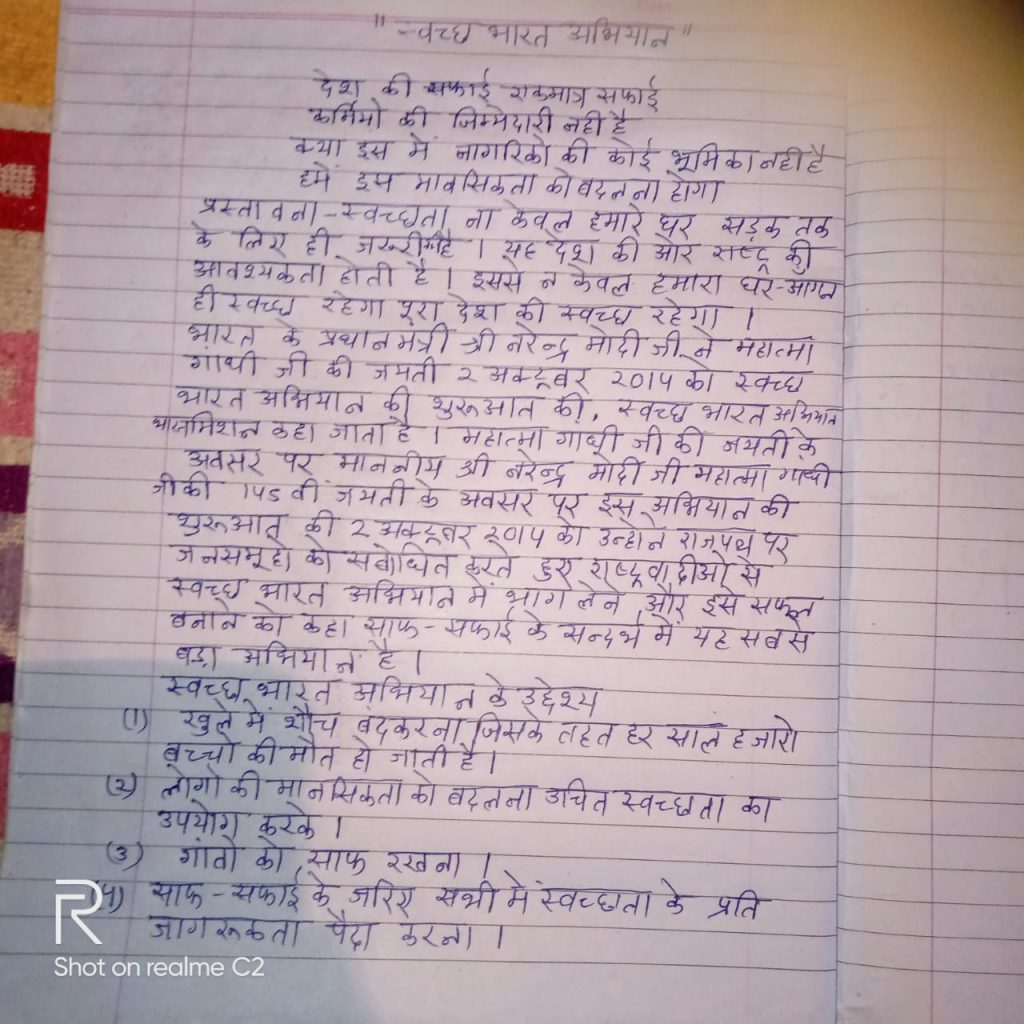 "स्वच्छ भारत अभियान"
देश की सफाई एकमात्र सफाई
कर्मियो की जिम्मेदारी नही है
क्या इस में नागरिको की कोई भूमिका नही है
हमें इस मानसिकता को बदलना होगा
प्रस्तावना - स्वच्छता ना केवल हमारे घर सड़क तक
के लिए ही जरूरी है । यह देश की और राष्ट्र की
आवश्यकता होती है । इससे न केवल हमारा घर-आंगन
ही स्वच्छ रहेगा पूरा देश की स्वच्छ रहेगा ।
भारत के प्रधानमंत्री श्री नरेन्द्र मोदी जी ने महात्मा
गांधी जी की जयंती २ अक्टूबर २०१४ को स्वच्छ
भारत अभियान की शुरूआत की, स्वच्छ भारत अभियान
मिशन कहा जाता है । महात्मा गाधी जी की जयंती के
अवसर पर माननीय श्री नरेन्द्र मोदी जी महात्मा गाधी
जी की 145 वी जयंती के अवसर पर इस अभियान की
शुरूआत की २ अक्टूबर २०१४ को उन्होने राजपथ पर
जनसमूहो को संबोधित करते हुए राष्ट्रवादीओ से
स्वच्छ भारत अभियान में भाग लेने और इसे सफल
बनाने को कहा साफ - सफाई के सन्दर्भ में यह सबसे
बड़ा अभियान है ।
स्वच्छ भारत अभियान के उद्देश्य
(1) खुले में शौच बंद करना जिसके तहत हर साल हजारो
बच्चो की मौत हो जाती है ।
(२) लोगो की मानसिकता को बदलना उचित स्वच्छता का
उपयोग करके ।
(3) गांवो को साफ रखना ।
(4) साफ - सफाई के जरिए सभी में स्वच्छता के प्रति
जागरूकता पैदा करना ।
R
Shot on realme C2